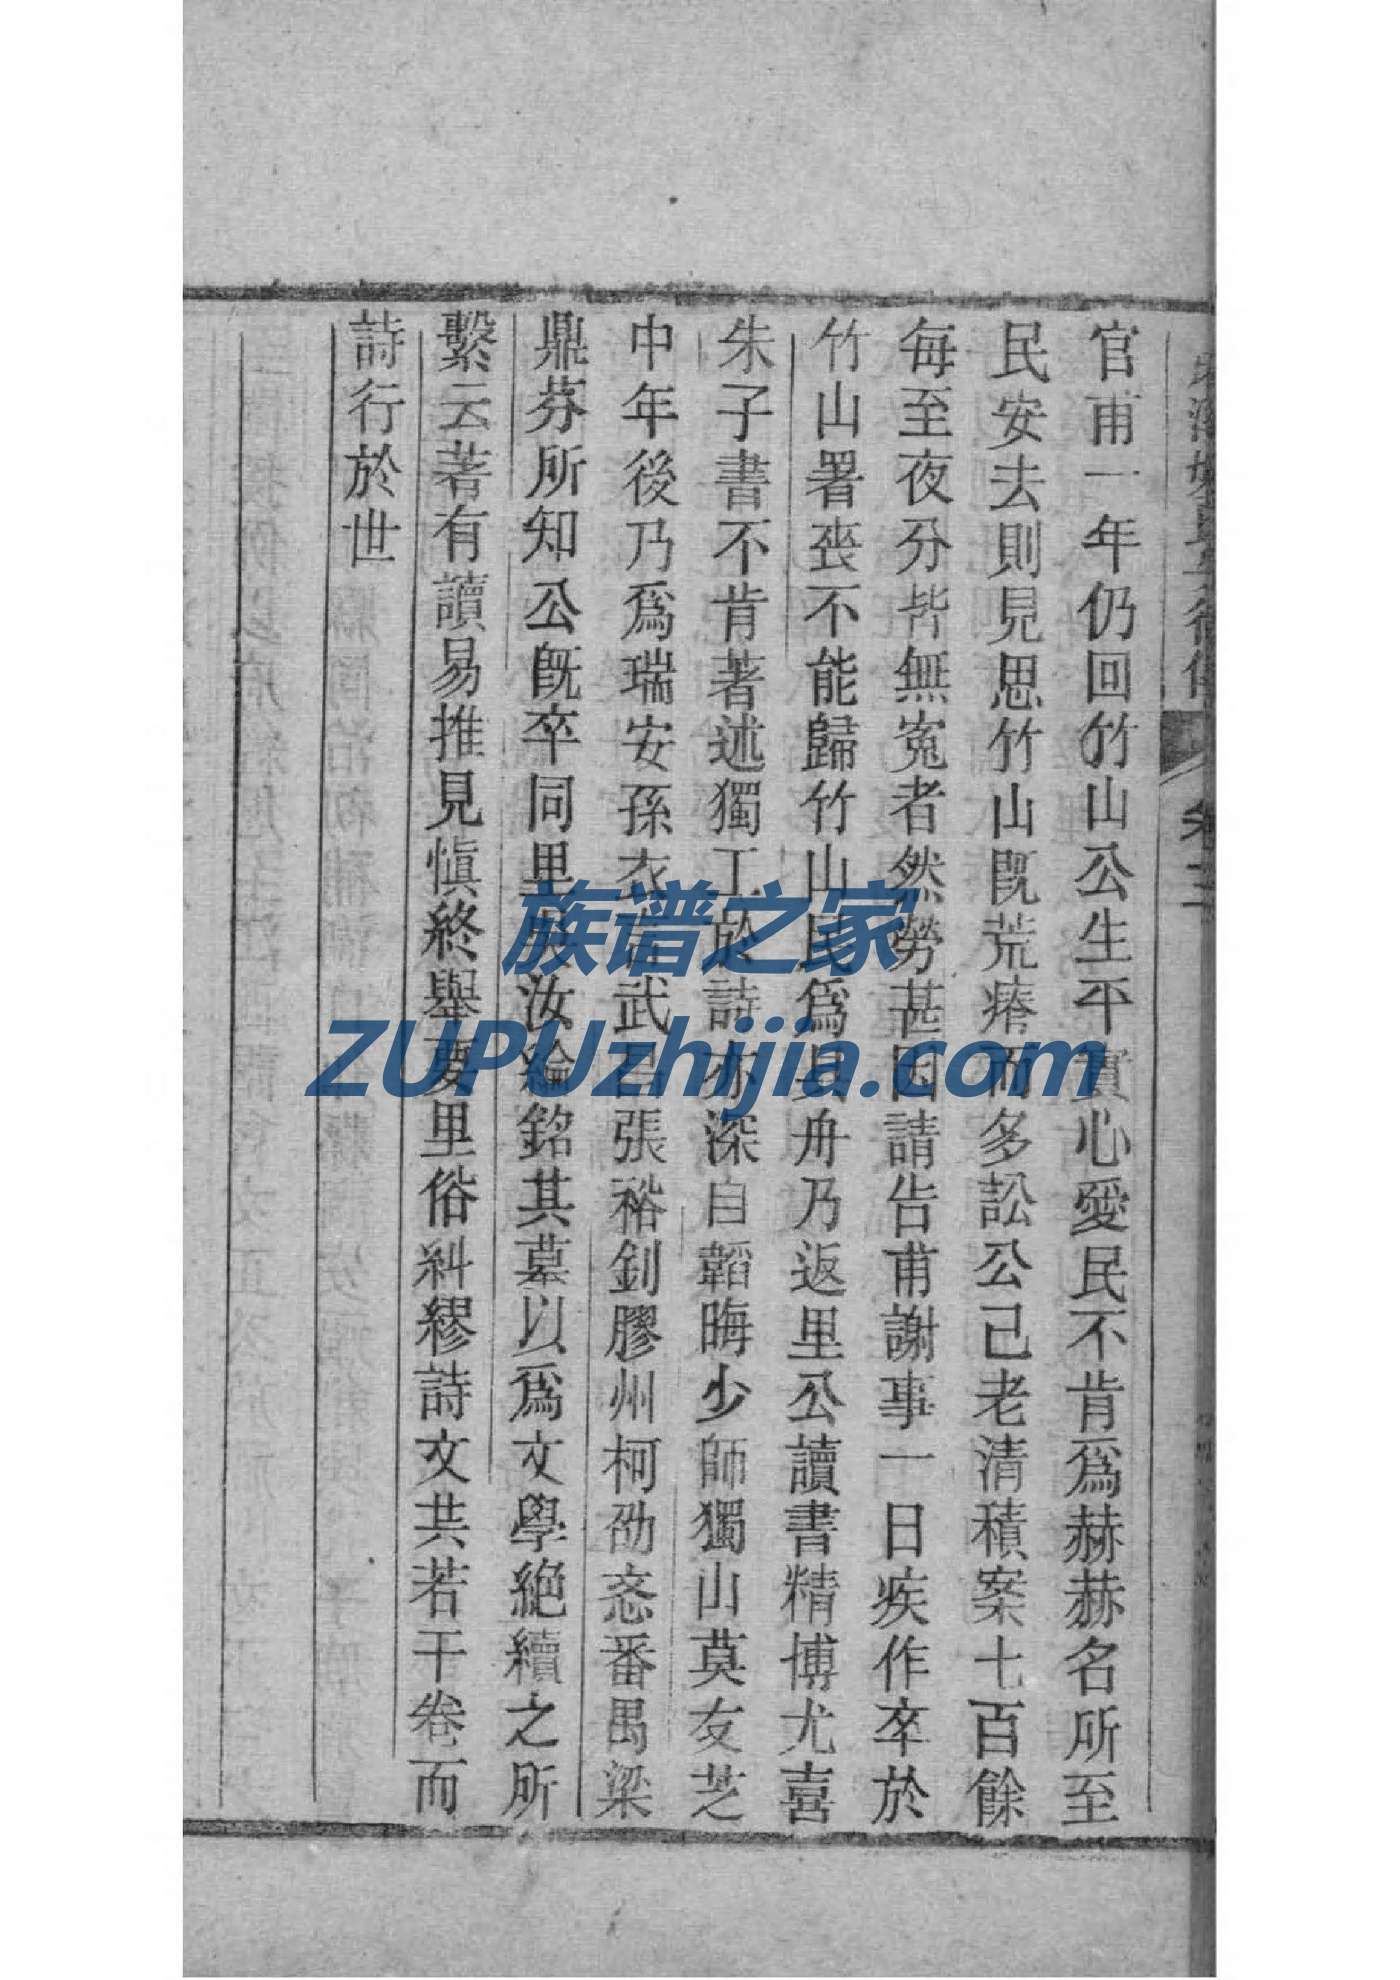 官甫一年仍回竹山公生平實心愛民不肯爲赫赫名所至
民安去則見思竹山既荒瘠而多訟公已老清積案七百餘
每至夜分皆無寃者然勞甚因請告甫謝事一日疾作卒於
竹山署喪不能歸竹山民爲具舟乃返里公讀書精博尤喜
朱子書不肯著述獨工於詩亦深自韜晦少師獨山莫友芝
中年後乃爲瑞安孫衣言武昌張裕釗膠州柯劭忞番禺梁
鼎芬所知公既卒同里吳汝綸銘其墓以爲文學絶續之所
繫云著有讀易推見愼終舉要里俗糾繆詩文共若干卷而
詩行於世
族谱之家
ZUPUzhijia.com